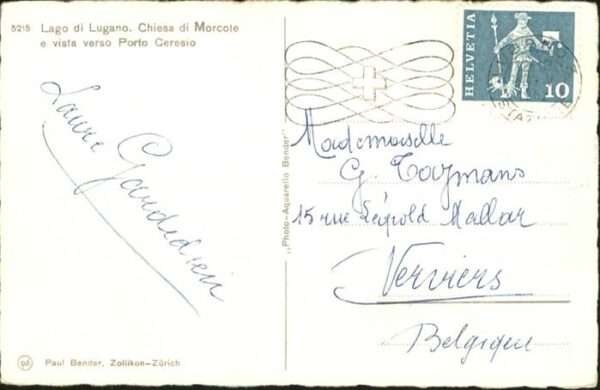 5215 Lago di Lugano. Chiesa di Morcote
e vista verso Porto Ceresio
HELVETIA
10
Laure
Mademoiselle
G. Toymans
15 rue Léopold Mallar
Verviers
Belgique
„Photo-Aquarello Bender"
Paul Bender, Zollikon-Zürich